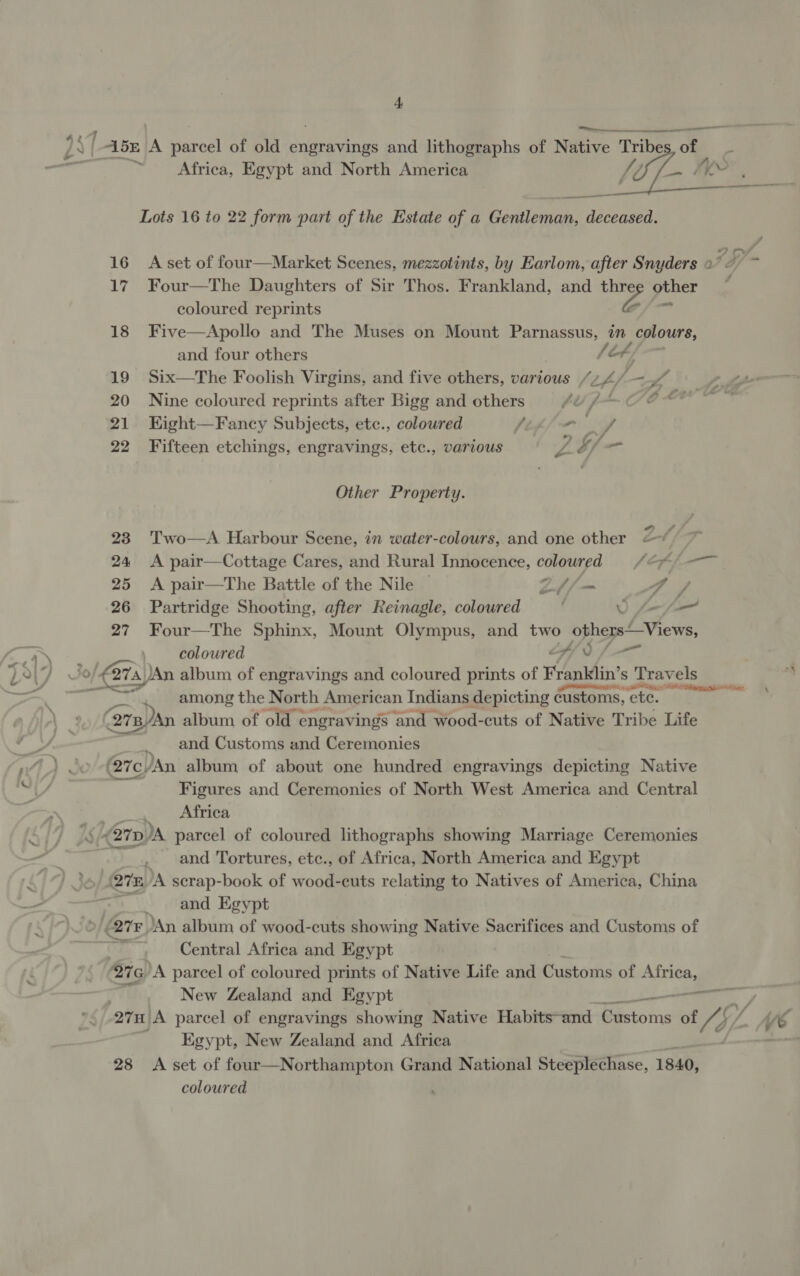 4
15E A parcel of old engravings and lithographs of Native Tribes, of
Africa, Egypt and North America
Lots 16 to 22 form part of the Estate of a Gentleman, deceased.
16 A set of four—Market Scenes, mezzotints, by Earlom, after Snyders
17 Four—The Daughters of Sir Thos. Frankland, and three other
coloured reprints
18 Five—Apollo and The Muses on Mount Parnassus, in colours,
and four others
19 Six—The Foolish Virgins, and five others, various
20 Nine coloured reprints after Bigg and others
21 Eight—Fancy Subjects, etc., coloured
22 Fifteen etchings, engravings, etc., various
Other Property.
23 Two—A Harbour Scene, in water-colours, and one other
24 A pair—Cottage Cares, and Rural Innocence, coloured
25 A pair—The Battle of the Nile
26 Partridge Shooting, after Reinagle, coloured
27 Four—The Sphinx, Mount Olympus, and two others—Views,
coloured
27A An album of engravings and coloured prints of Franklin's Travels
among the North American Indians depicting customs, etc.
27B An album of old engravings and wood-cuts of Native Tribe Life
and Customs and Ceremonies
27C An album of about one hundred engravings depicting Native
Figures and Ceremonies of North West America and Central
Africa
27D A parcel of coloured lithographs showing Marriage Ceremonies
and Tortures, etc., of Africa, North America and Egypt
27E A scrap-book of wood-cuts relating to Natives of America, China
and Egypt
27F An album of wood-cuts showing Native Sacrifices and Customs of
Central Africa and Egypt
27G A parcel of coloured prints of Native Life and Customs of Africa,
New Zealand and Egypt
27H A parcel of engravings showing Native Habits and Customs of
Egypt, New Zealand and Africa
28 A set of four—Northampton Grand National Steeplechase, 1840,
coloured